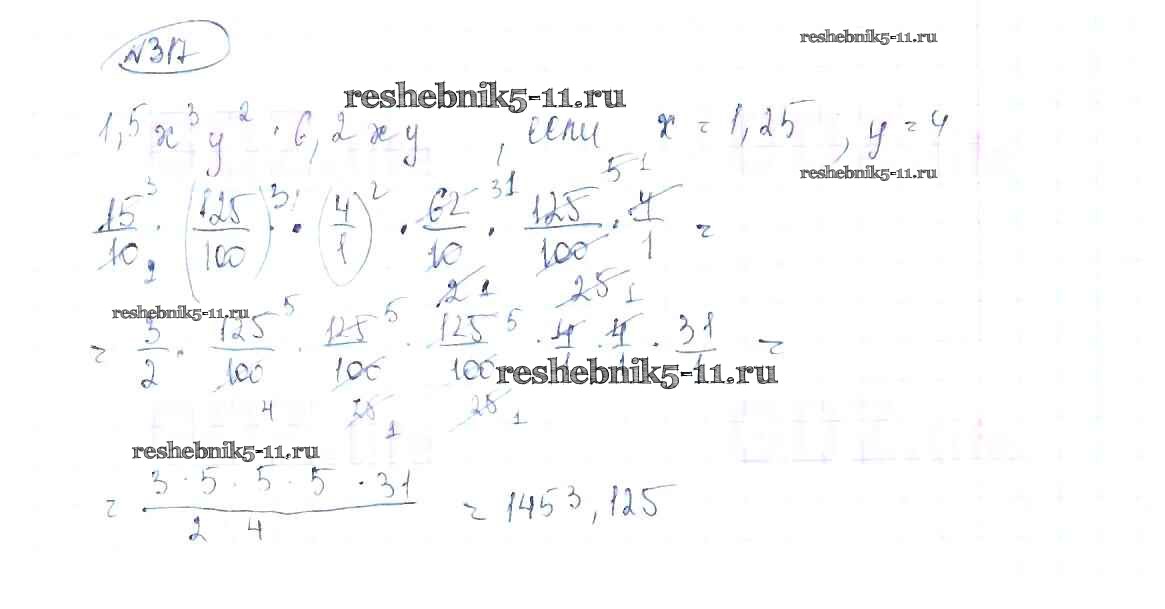 reshebnik5-11.ru
№317
reshebnik5-11.ru
1,5x³y² · 6,2xy, если x = 1,25, y = 4
reshebnik5-11.ru
15/10 · (125/100)³ · (4/1)² · 62/10 · 125/100 · 4/1 =
reshebnik5-11.ru
= 3/2 · 125/100 · 125/100 · 125/100 · 4/1 · 4/1 · 31/1 =
reshebnik5-11.ru
reshebnik5-11.ru
= 3 · 5 · 5 · 5 · 31 / 2 4 = 1453,125